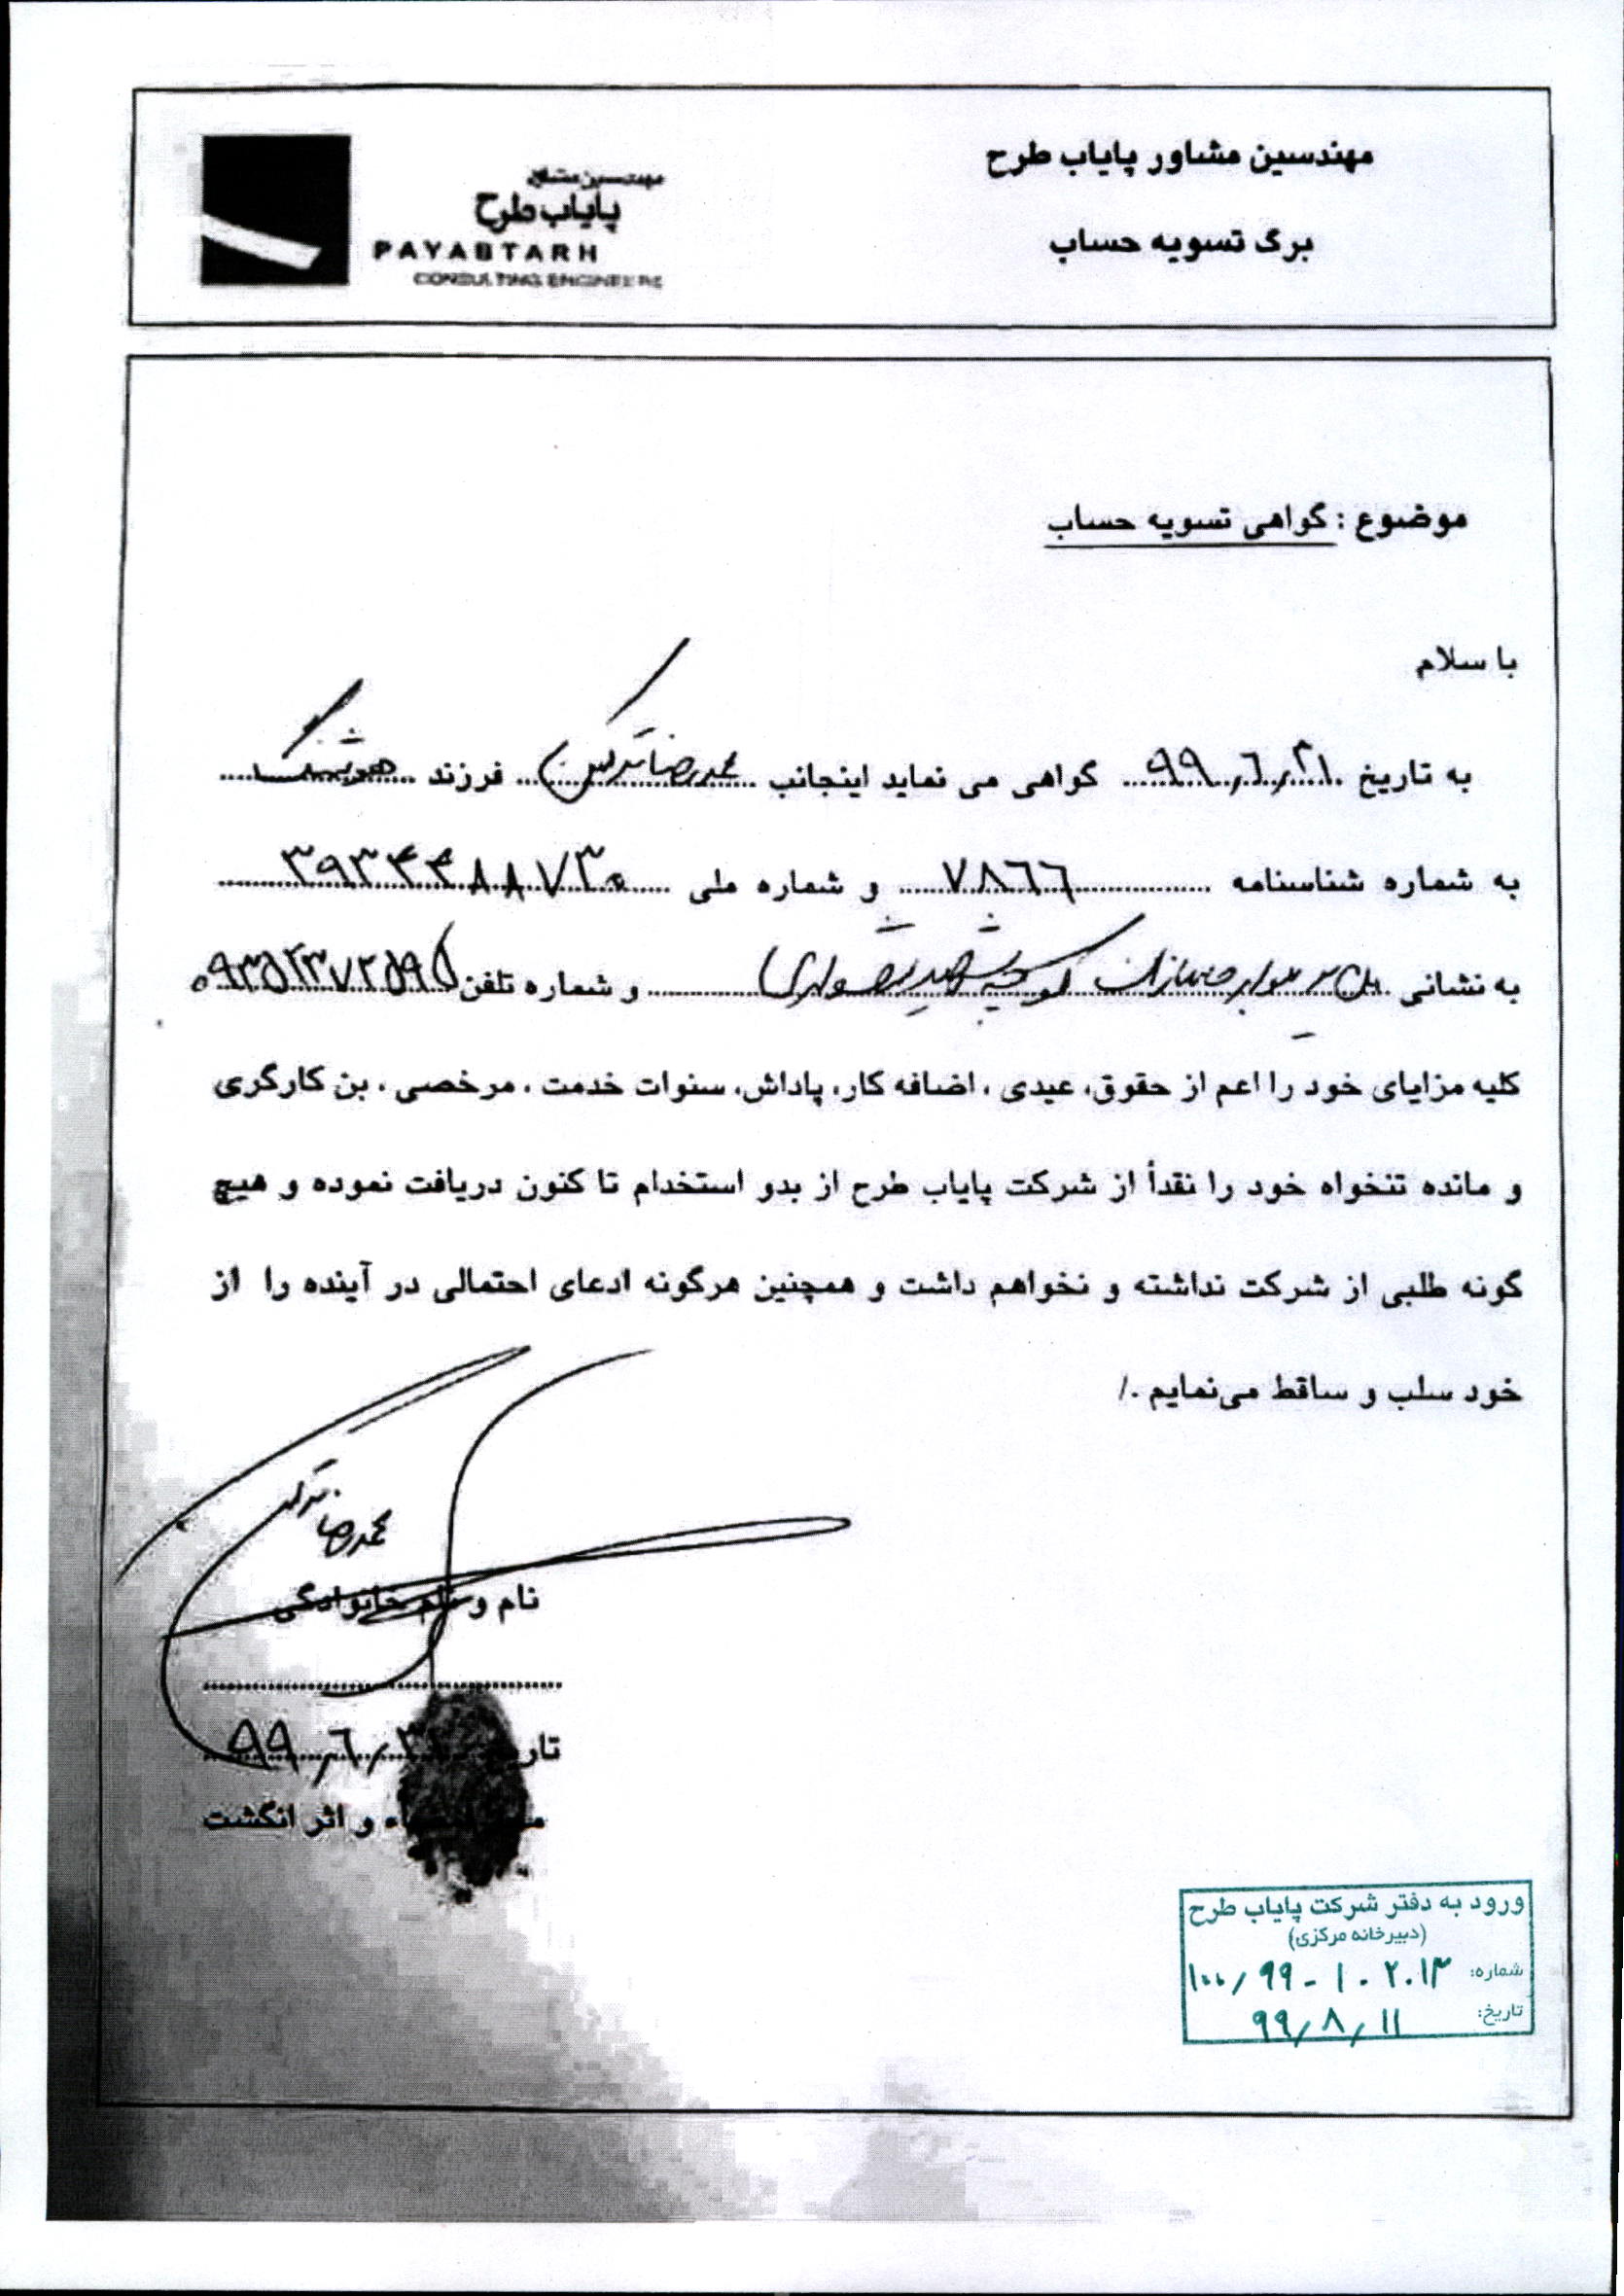 مهندسین مشاور پایاب طرح
برگ تسویه حساب
مهندسین مشاور
پایاب طرح
PAYABTARH
CONSULTING ENGINEERS
موضوع : گواهی تسویه حساب
با سلام
به تاریخ ۹۹/۶/۳۱ گواهی می نماید اینجانب محمدرضا فرزند هوشنگ
به شماره شناسنامه ۷۸۶۶ و شماره ملی ۳۹۳۴۴۸۸۷۳۰
به نشانی کوچه شهید و شماره تلفن ۰۹۳۵۲۳۷۲۵۹۵
کلیه مزایای خود را اعم از حقوق، عیدی ، اضافه کار، پاداش، سنوات خدمت ، مرخصی ، بن کارگری
و مانده تنخواه خود را نقداً از شرکت پایاب طرح از بدو استخدام تا کنون دریافت نموده و هیچ
گونه طلبی از شرکت نداشته و نخواهم داشت و همچنین هرگونه ادعای احتمالی در آینده را از
خود سلب و ساقط می‌نمایم ./
محمدرضا
نام و نام خانوادگی
تاریخ ۹۹/۶/۳۱
و اثر انگشت
ورود به دفتر شرکت پایاب طرح
(دبیرخانه مرکزی)
شماره: ۱۰۰/۹۹-۱۰۲۰۱۳
تاریخ: ۹۹/۸/۱۱